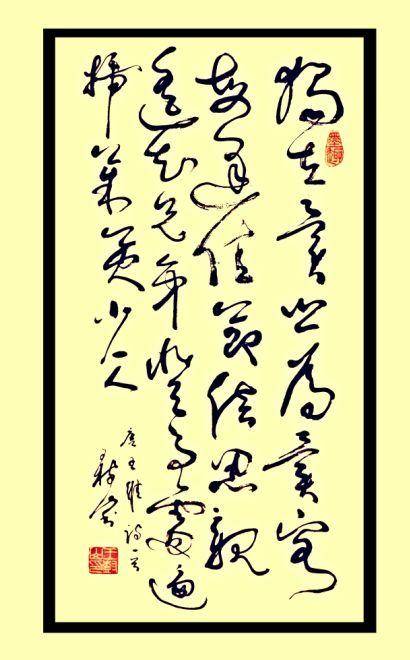 獨在異鄉為異客
每逢佳節倍思親
遙知兄弟登高處遍
插茱萸少一人
唐王維詩一首